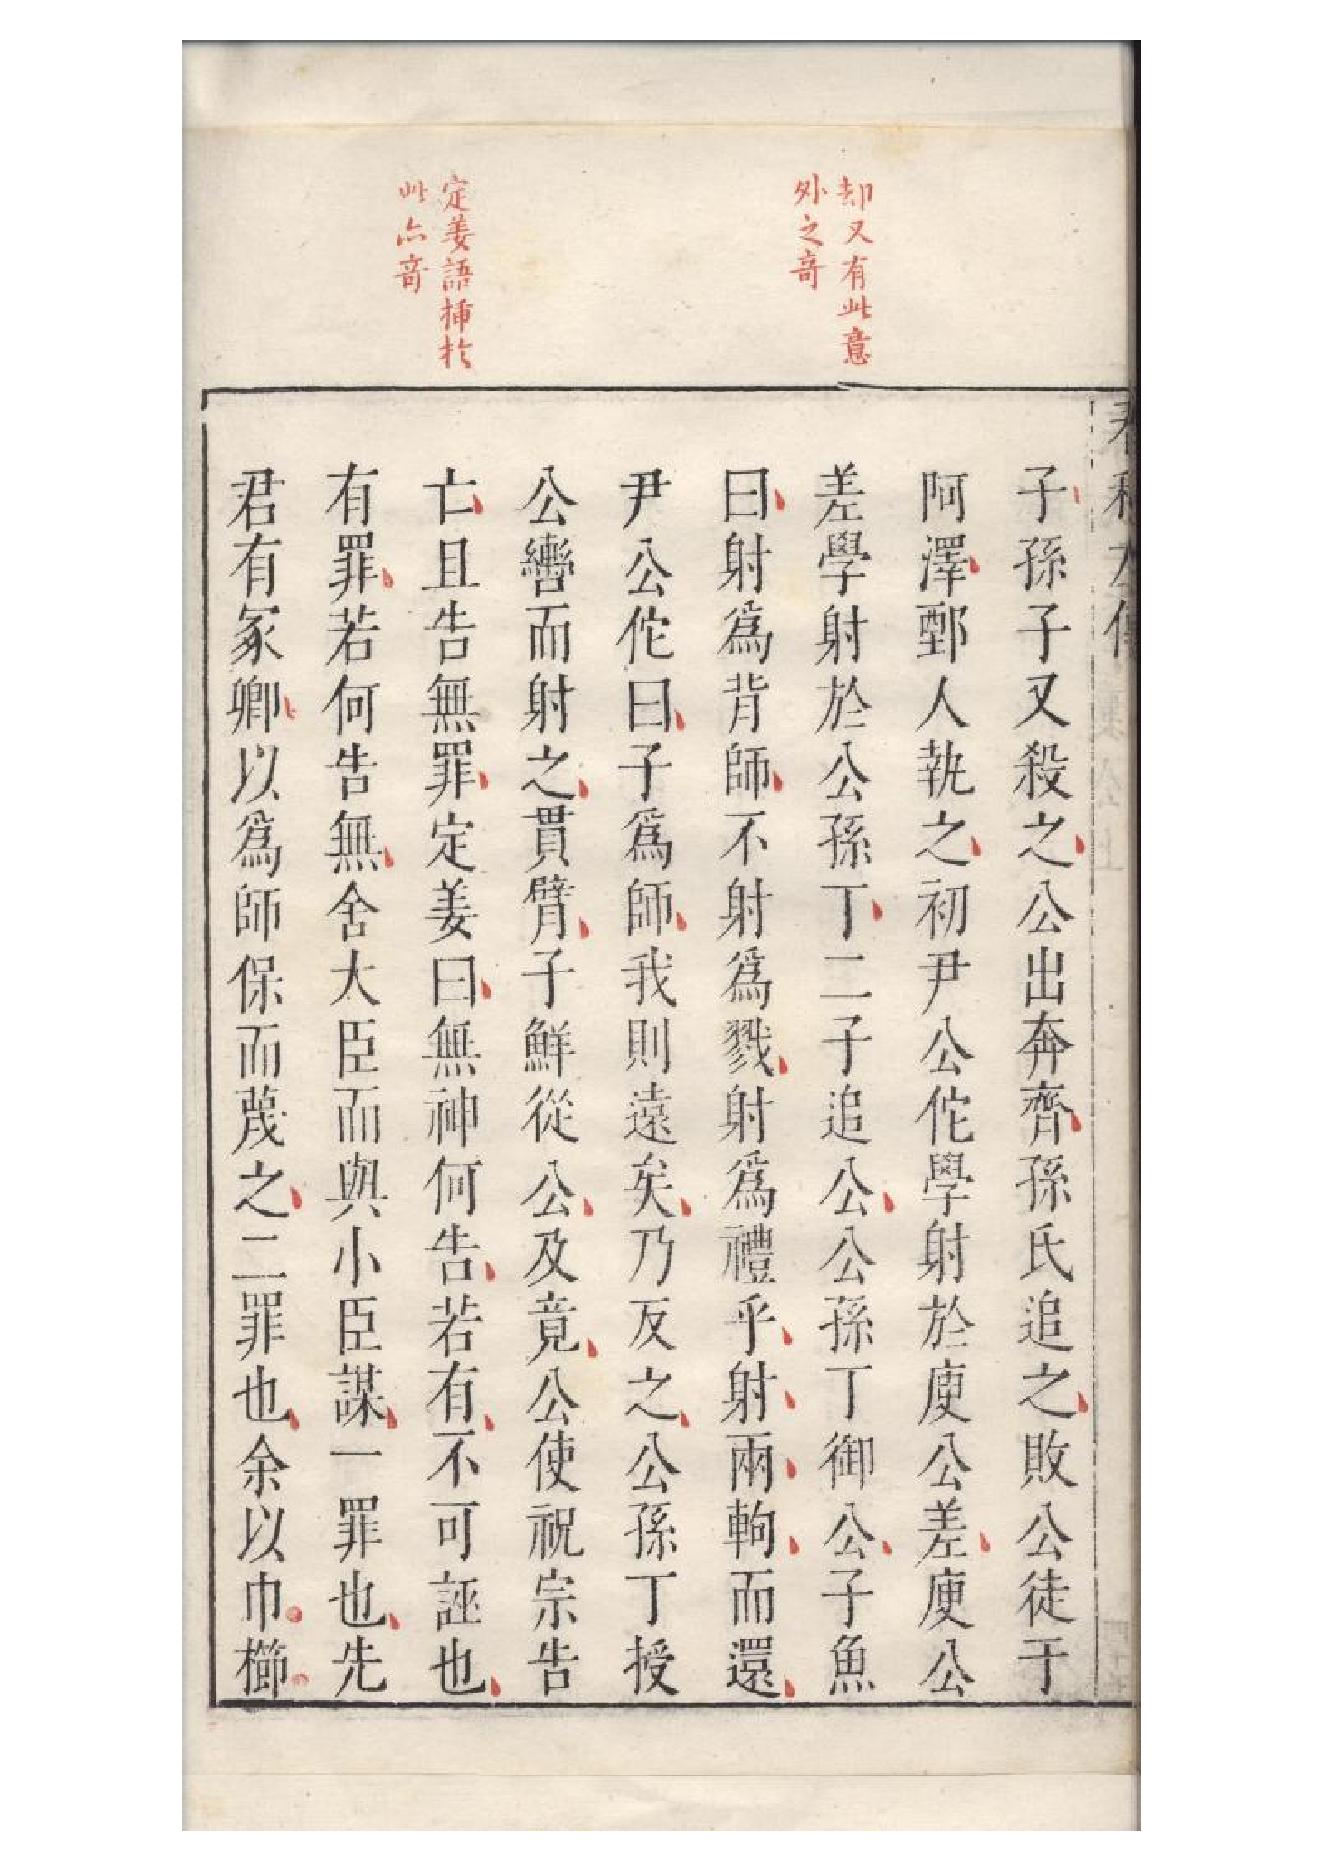 却又有此意
外之竒
定姜語揷於
此亦竒
子孫子又殺之公出奔齊孫氏追之敗公徒于
阿澤鄄人執之初尹公佗學射於庾公差庾公
差學射於公孫丁二子追公公孫丁御公子魚
曰射爲背師不射爲戮射爲禮乎射兩軥而還
尹公佗曰子爲師我則遠矣乃反之公孫丁授
公轡而射之貫臂子鮮從公及竟公使祝宗告
亡且告無罪定姜曰無神何告若有不可誣也
有罪若何告無舍大臣而與小臣謀一罪也先
君有冢卿以爲師保而蔑之二罪也余以巾櫛